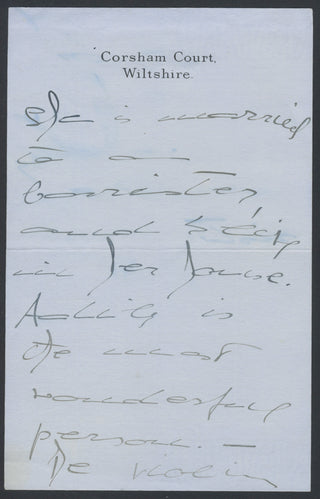 Corsham Court,
Wiltshire.
She is married
to a
barrister,
and
in her house.
Adila is
the most
wonderful
person. —
The violin